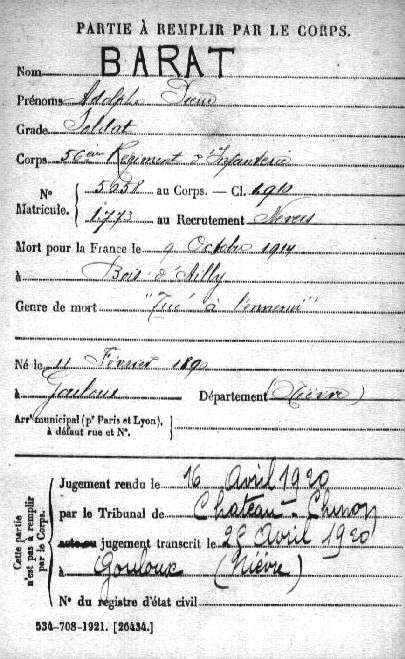 PARTIE À REMPLIR PAR LE CORPS.
Nom BARAT
Prénoms Adolphe Pierre
Grade Soldat
Corps 56ème Régiment d'Infanterie
N° Matricule. { 5958 au Corps. — Cl. 1910
1773 au Recrutement Nevers
Mort pour la France le 9 Octobre 1914
à Bois d'Ailly
Genre de mort "Tué à l'ennemi"
Né le 11 Février 1890
à Gouloux Département (Nièvre)
Arrt municipal (pr Paris et Lyon),
à défaut rue et N°.
Cette partie n'est pas à remplir par le Corps.
Jugement rendu le 16 Avril 1920
par le Tribunal de Chateau-Chinon
acte ou jugement transcrit le 28 Avril 1920
à Gouloux (Nièvre)
N° du registre d'état civil
534-708-1921. [26434.]